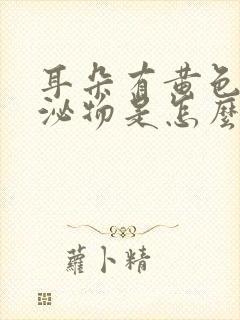 耳朵有黄色
泌物是怎麼
蘿卜精